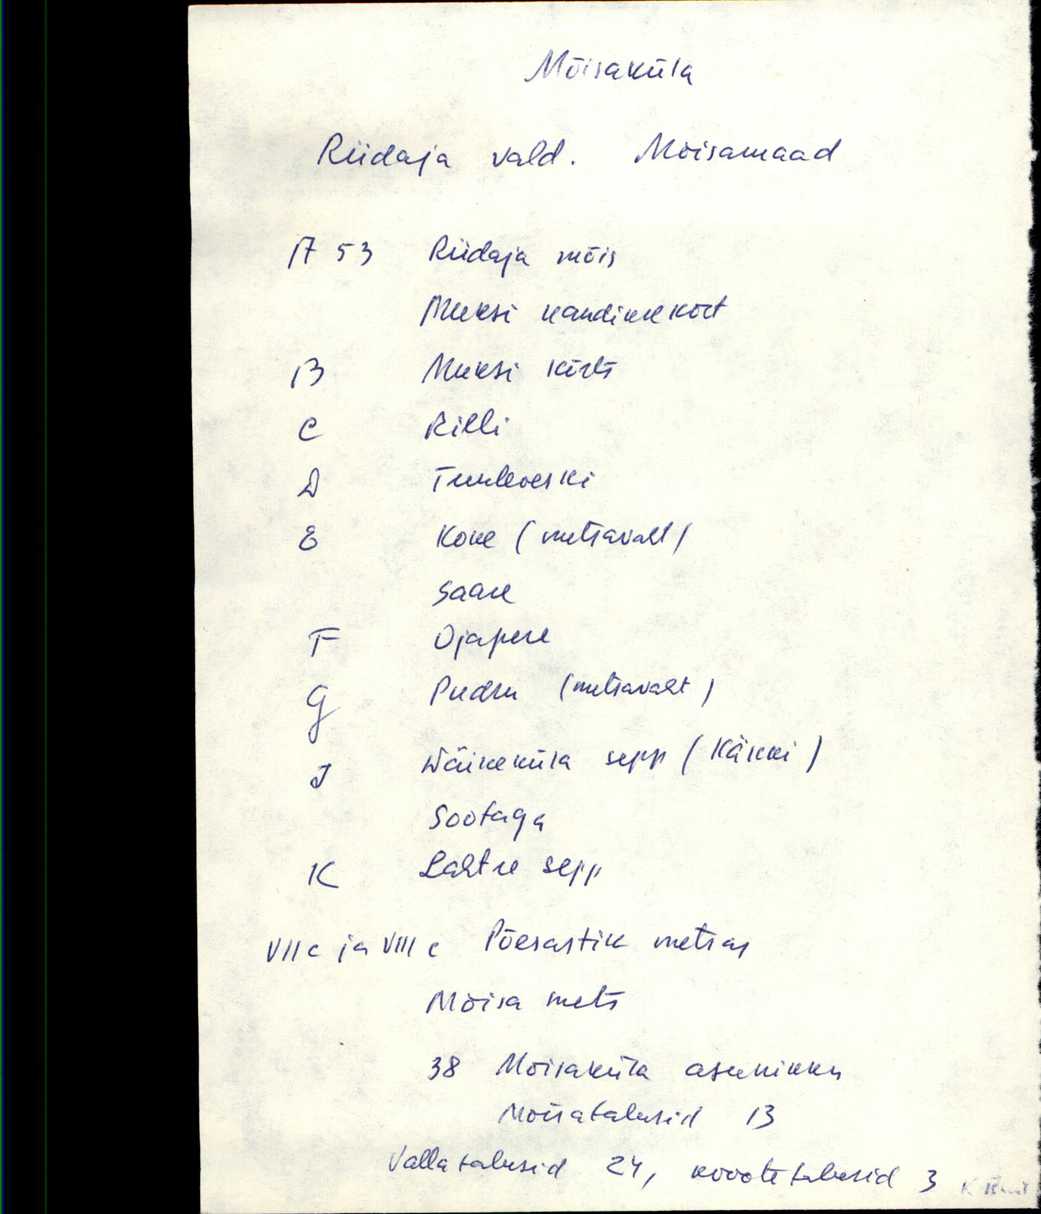 Mõisaküla
Riidaja vald. Mõisamaad
A 53 Riidaja mõis
Muksi kandikekört
B Muksi körts
C Rilli
D Tuuleveski
E Kone (metsavaht)
Saare
F Ojapere
G Pudru (metsavaht)
J Wäikeküla sepp (Käkki)
Sootaga
K Lahtre sepp
VII c ja VIII c Põesastik metsas
Mõisa mets
38 Mõisaküla asunikku
Mõisatalusid 13
Vallatalusid 24, krootetalusid 3